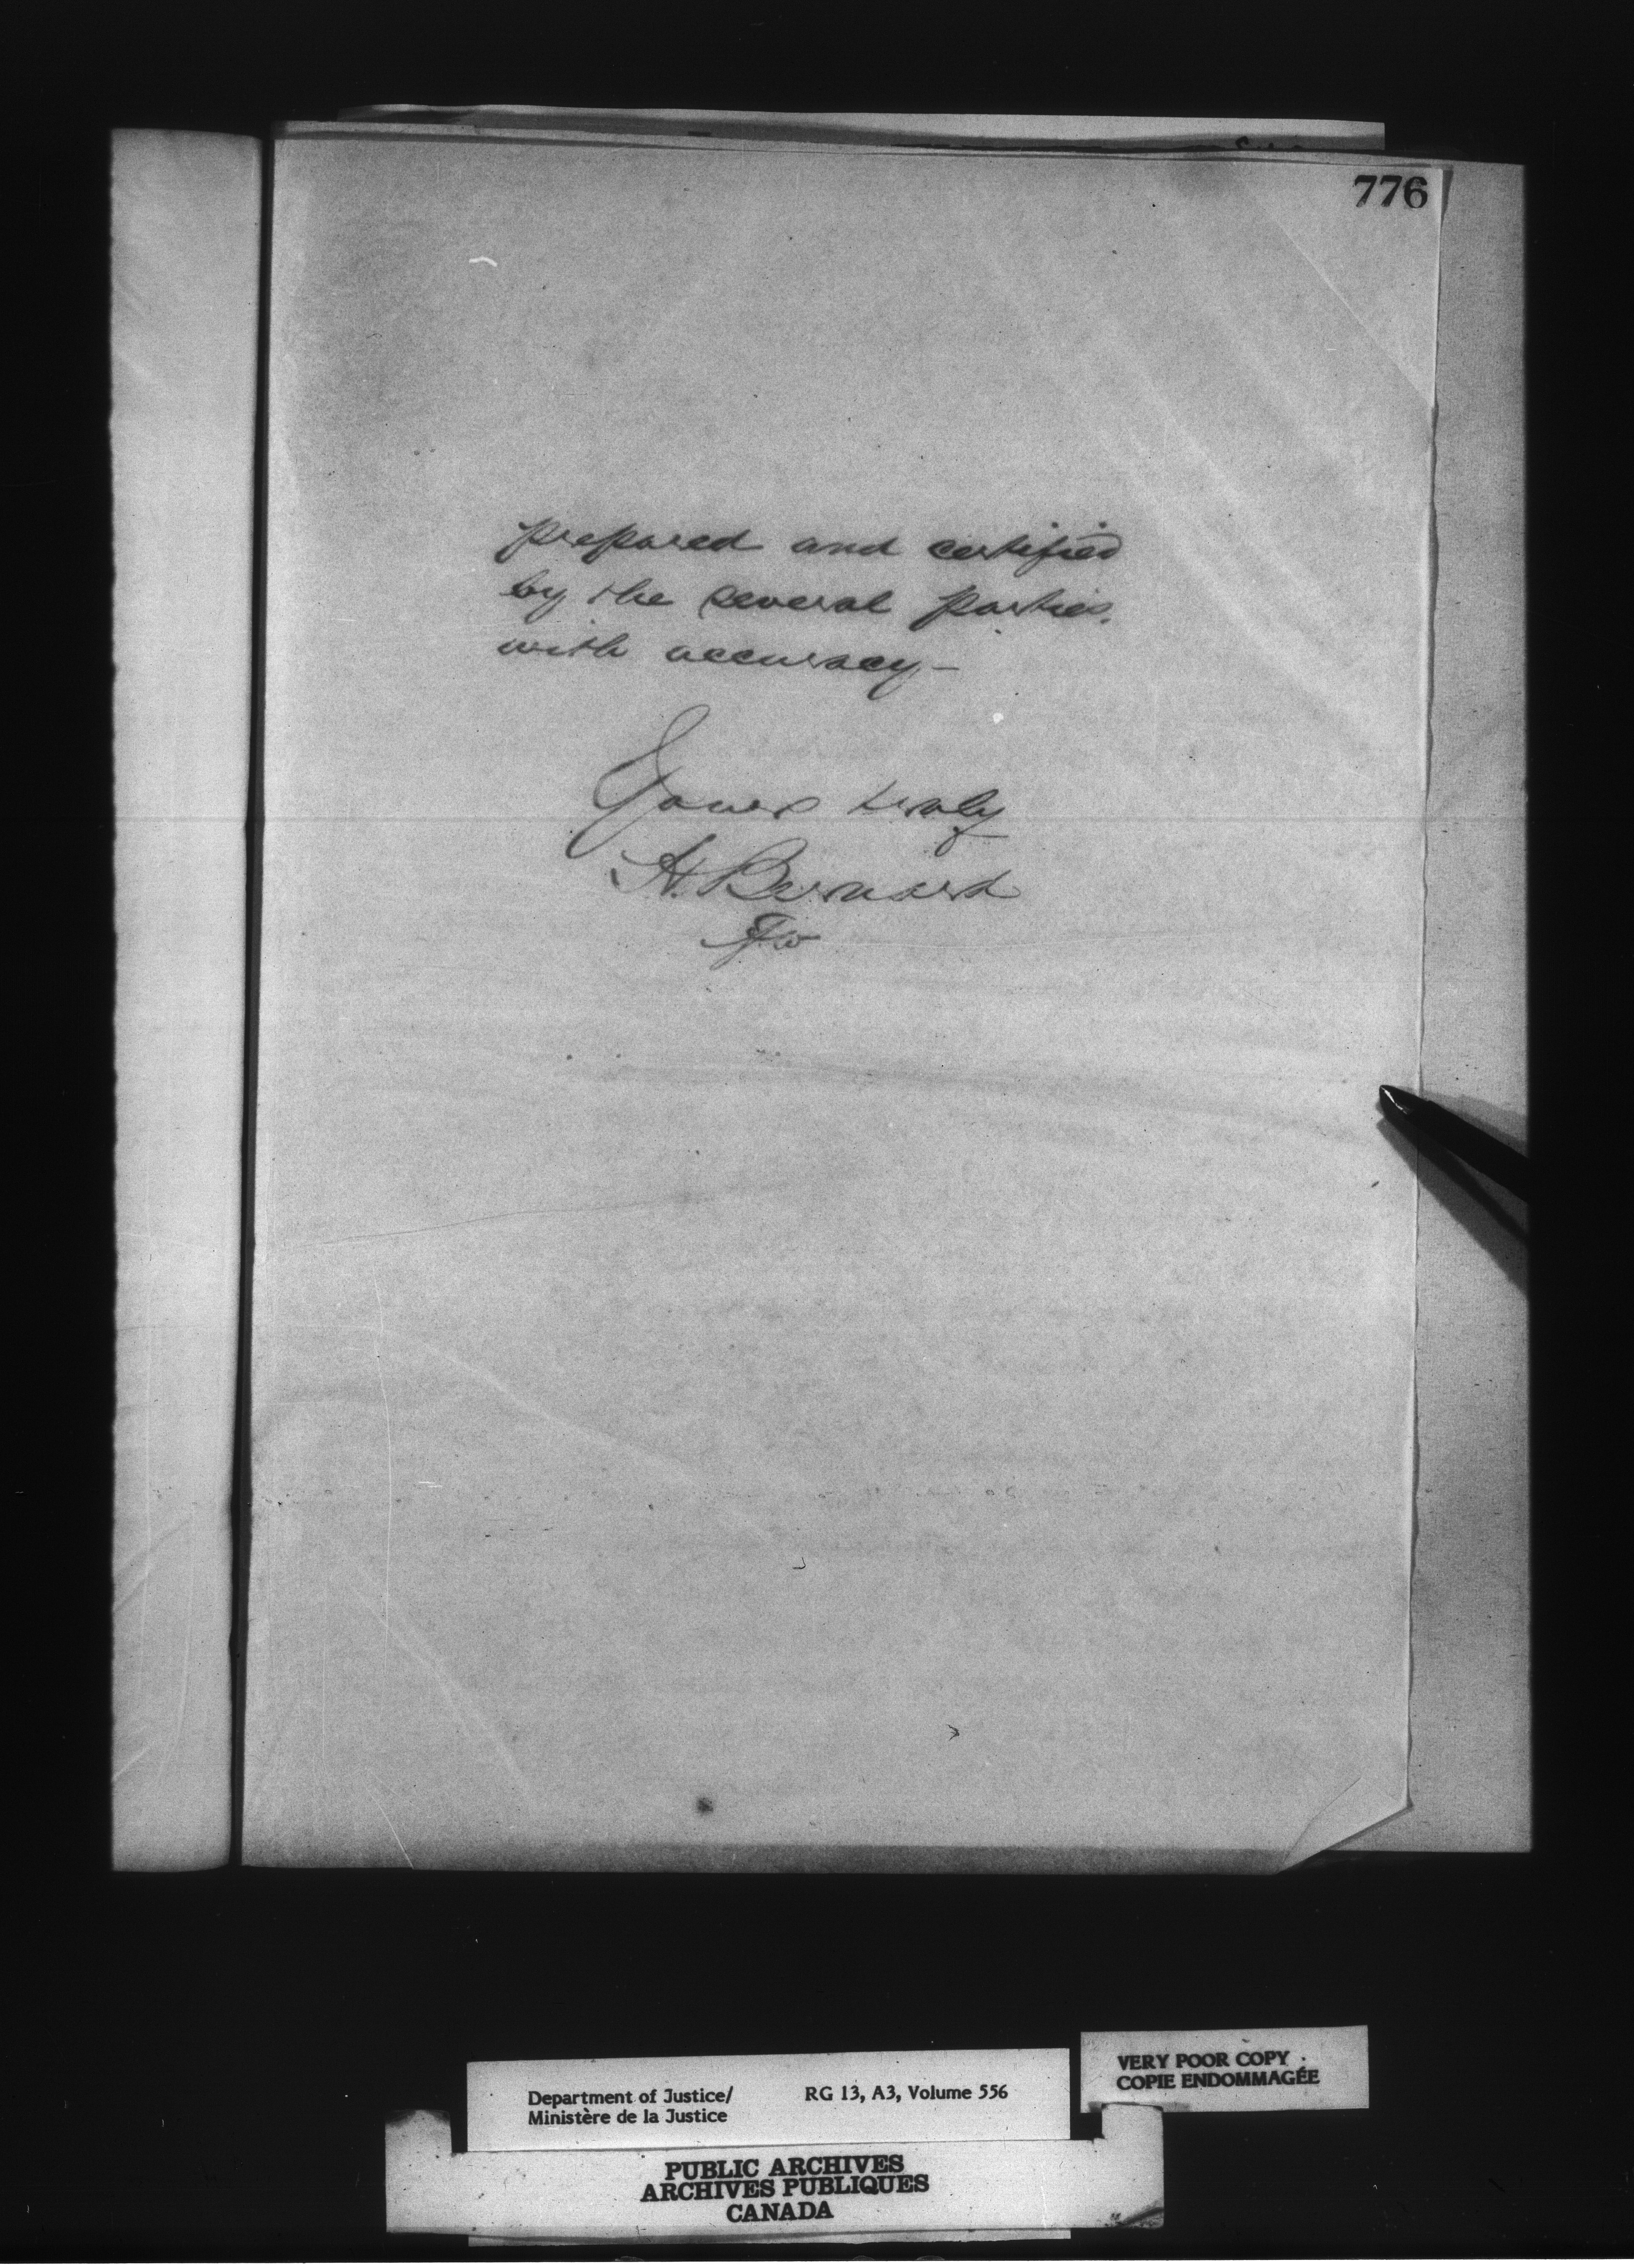 776
prepared and certified
by the several parties.
with accuracy –
Yours truly
H. Bernard
VERY POOR COPY
COPIE ENDOMMAGÉE
Department of Justice/ RG 13, A3, Volume 556
Ministère de la Justice
PUBLIC ARCHIVES
ARCHIVES PUBLIQUES
CANADA